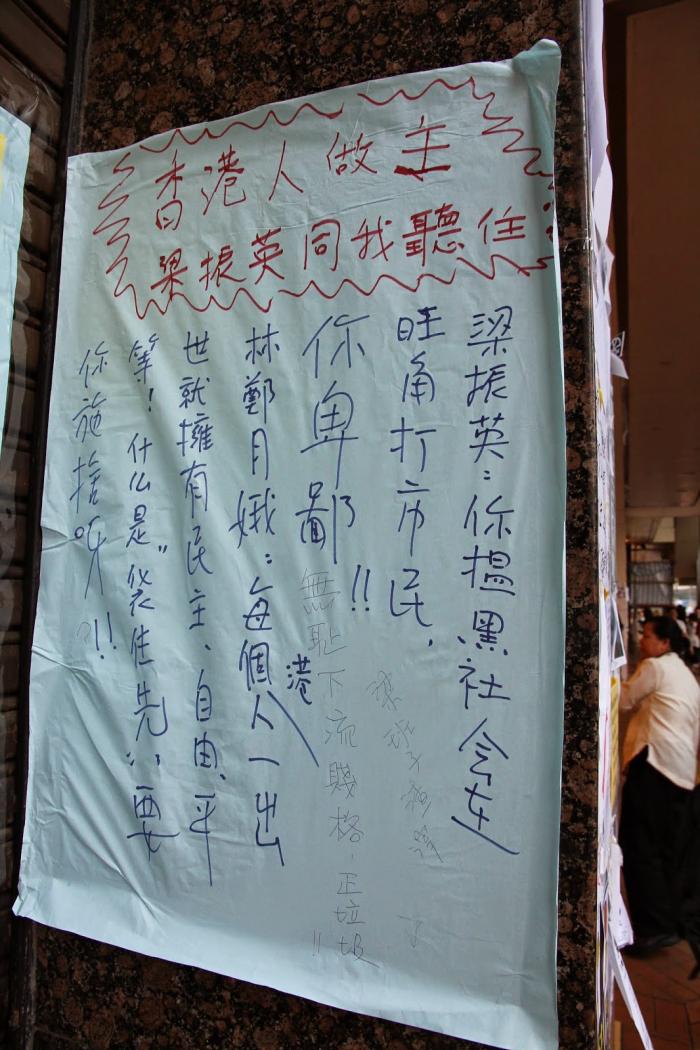 香港人做主
梁振英同我聽住
梁振英：你搵黑社会在
旺角打市民，
你卑鄙!!
無恥下流賤格，正垃圾!!
林鄭月娥：每個港人一出
世就擁有民主、自由、平
等！什么是"袋住先"，要
你施捨呀?!!